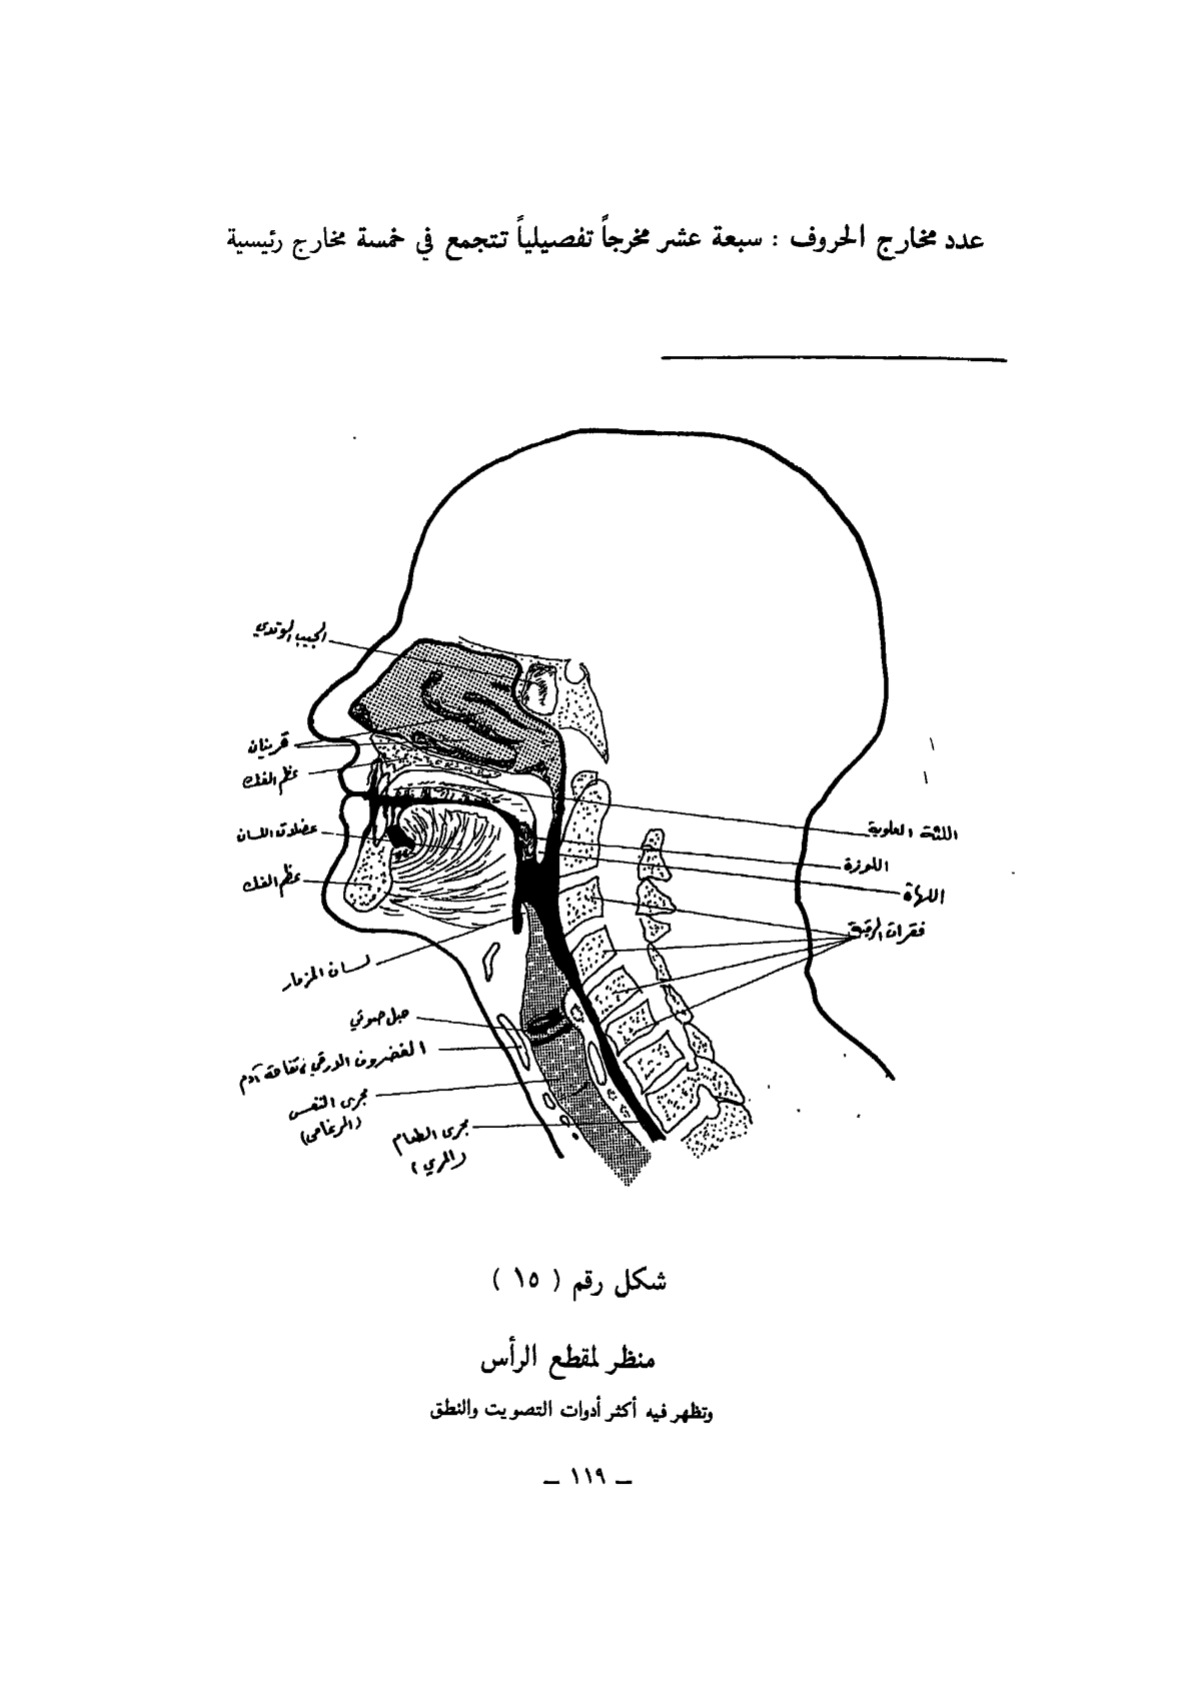 عدد مخارج الحروف : سبعة عشر مخرجاً تفصيلياً تتجمع في خمسة مخارج رئيسية
الجيب الوتدي
قرينان
عظم الفك
عضلات اللسان
عظم الفك
لسان المزمار
حبل صوتي
الغضروف الدرقي، تفاحة آدم
مجرى النفس
(الرغامى)
مجرى الطعام
(المري)
اللثة العلوية
اللوزة
اللهاة
فقرات الرقبة
شكل رقم ( ١٥ )
منظر لمقطع الرأس
وتظهر فيه أكثر أدوات التصويت والنطق
– ١١٩ –